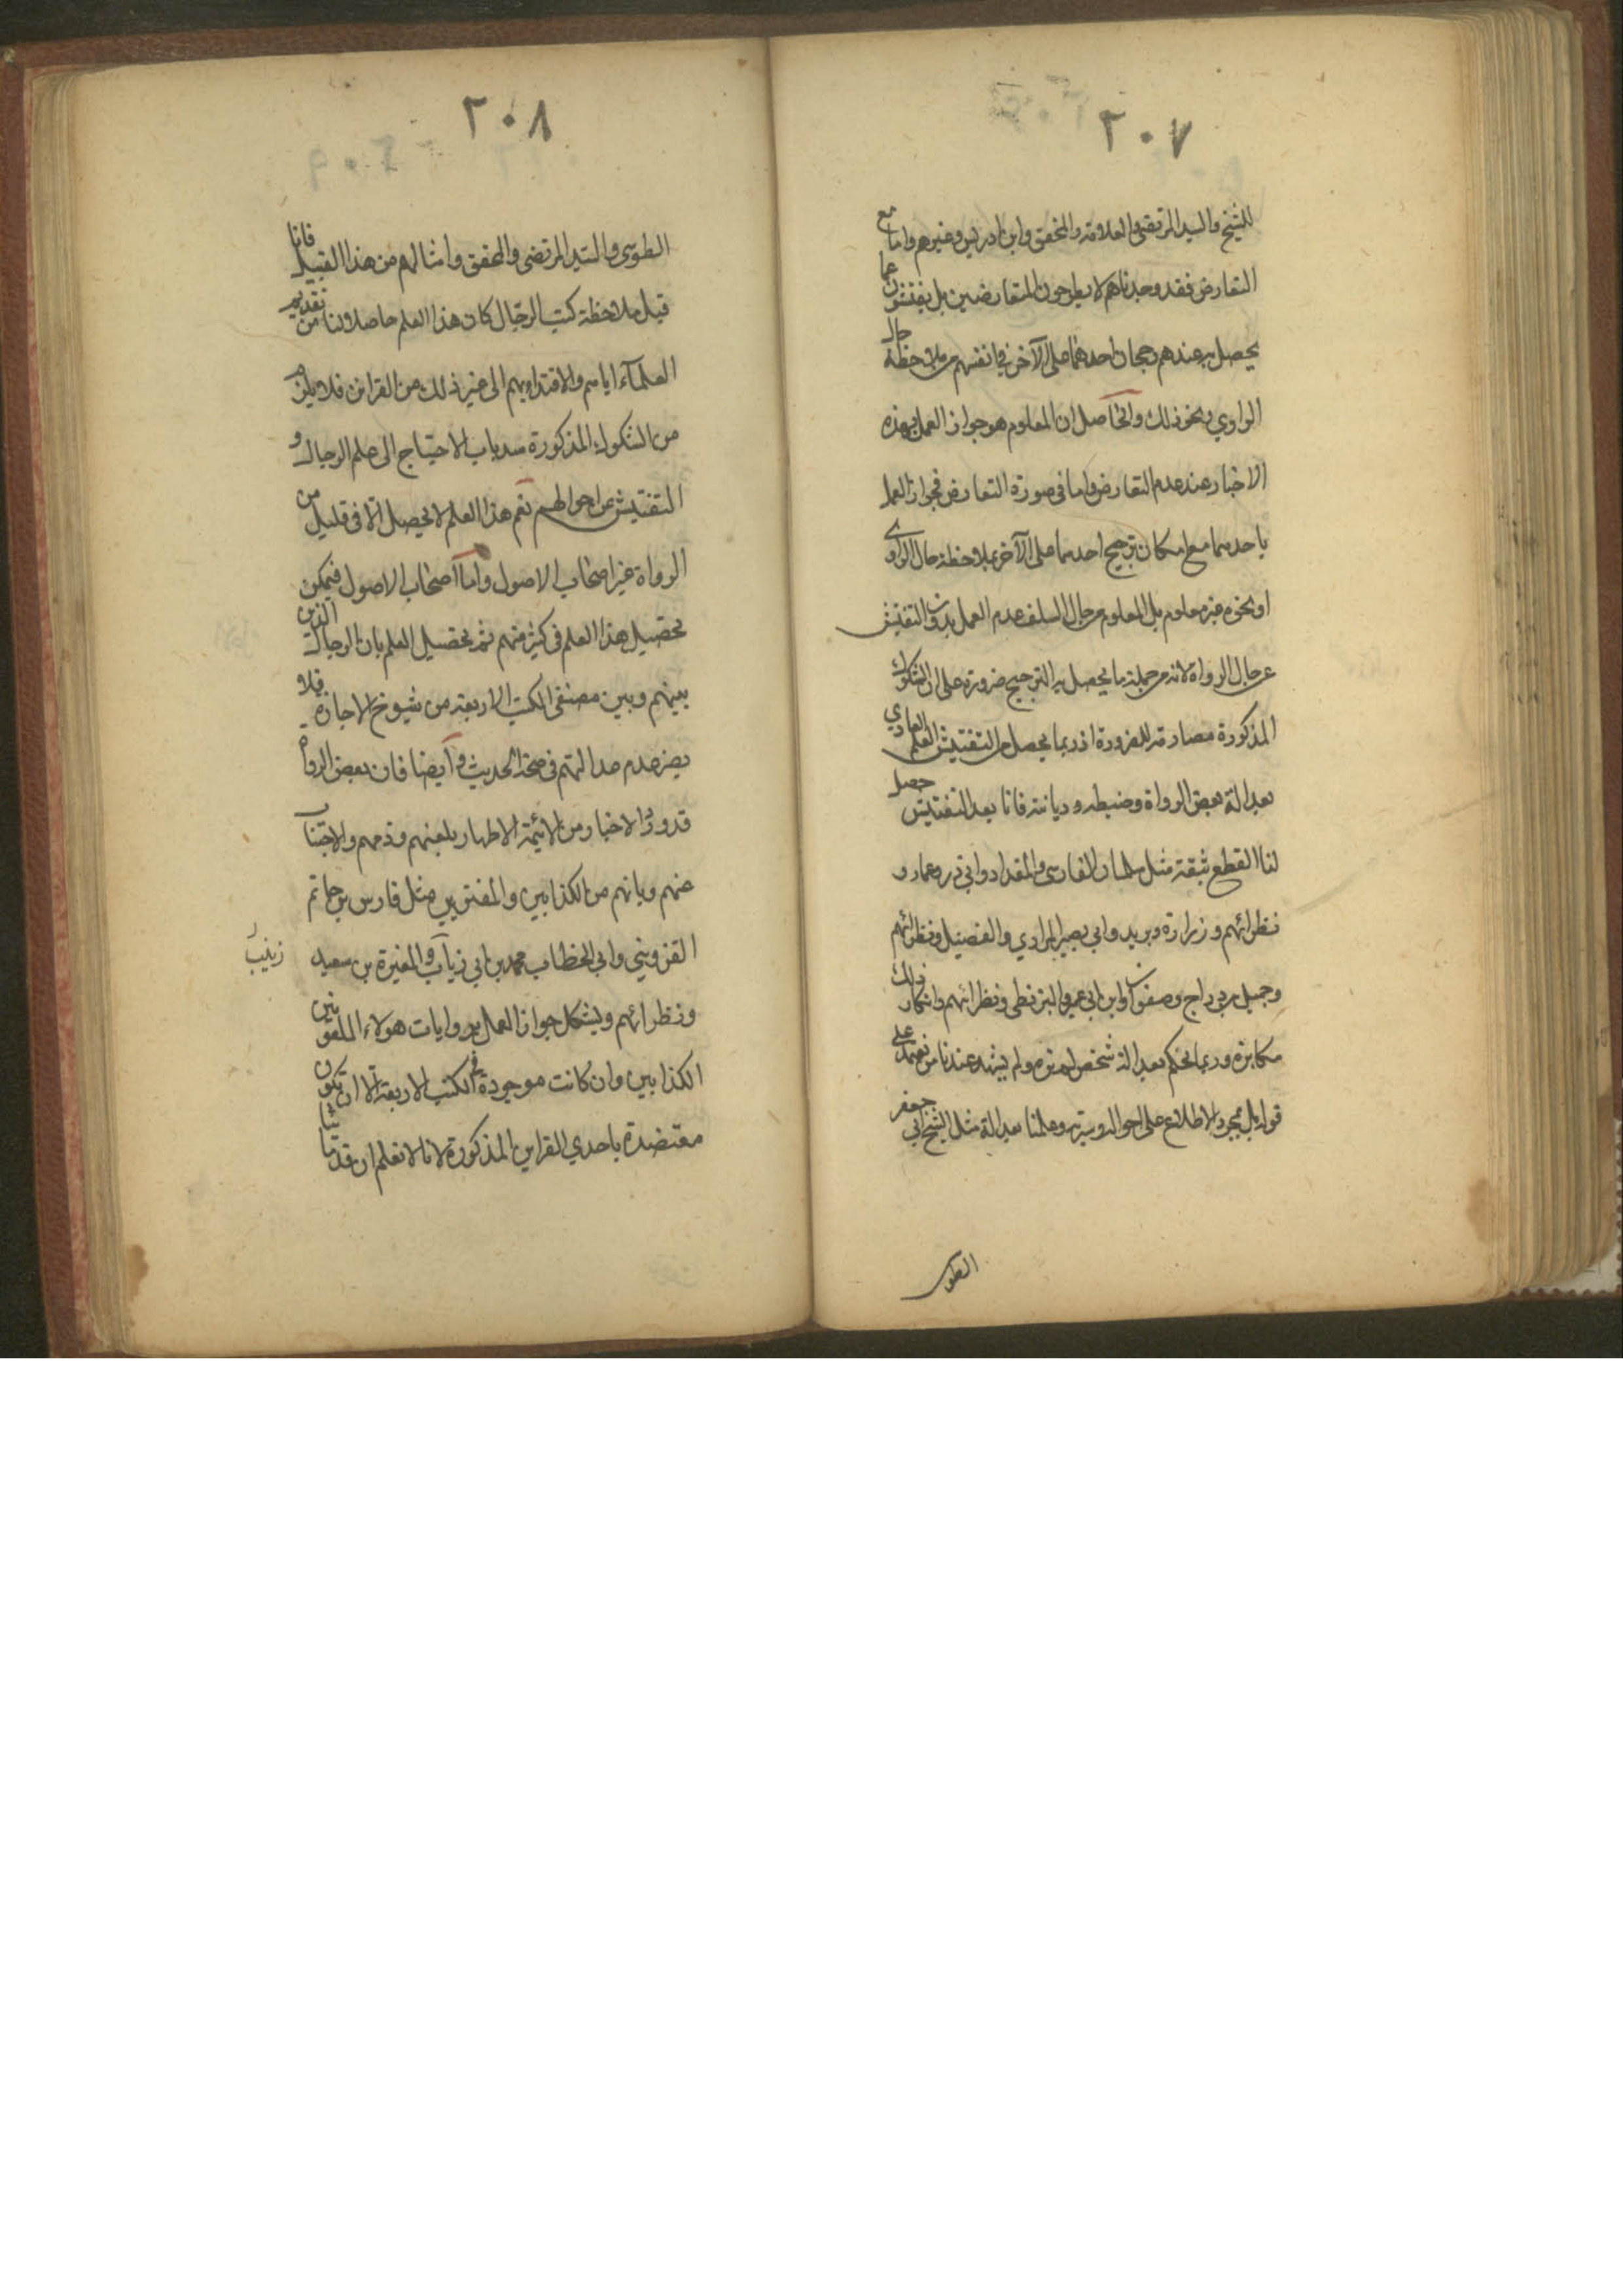 ٢٠٧
للشيخ والسيد المرتضى والعلامة والمحقق وابن ادريس وغيرهم واما مع
التعارض فقد وجدناهم لا يطرحون المتعارضين بل يفتشون عما
يحصل به عندهم رجحان احدهما على الآخر في انفسهم من ملاحظة حال
الراوي ونحو ذلك والحاصل ان المعلوم هو جواز العمل بهذه
الاخبار عند عدم التعارض واما في صورة التعارض فجواز العمل
باحدهما مع امكان ترجيح احدهما على الآخر بملاحظة حال الراوي
او نحوه غير معلوم بل المعلوم من حال السلف عدم العمل بدون التفتيش
عن حال الرواة لانه من جملة ما يحصل به الترجيح ضرورة على ان الشكوك
المذكورة مصادمة للضرورة اذ ربما يحصل من التفتيش العلم العادي
بعدالة بعض الرواة وضبطه وديانته فانا بعد التفتيش حصل
لنا القطع بثقة مثل سلمان الفارسي والمقداد وابي ذر وعمار و
نظرائهم وزرارة وبريد وابي بصير المرادي والفضيل ونظرائهم
وجميل بن دراج وصفوان وابن ابي عمير والبزنطي ونظرائهم وانكار ذلك
مكابرة وربما نحكم بعدالة شخص لم نره ولم يشهد عندنا من نعتمد على
قوله بل بمجرد الاطلاع على احواله وسيرته وعلمنا بعدالة مثل الشيخ ابي جعفر
الطوسي
٢٠٨
الطوسي والسيد المرتضى والمحقق وامثالهم من هذا القبيل فانا
قبل ملاحظة كتب الرجال كان هذا العلم حاصلا لنا من تقديم
العلمآء اياهم والاقتداء بهم الى غير ذلك من القرائن فلا يلزم
من الشكوك المذكورة سد باب الاحتياج الى علم الرجال و
التفتيش عن احوالهم نعم هذا العلم لا يحصل الا في قليل من
الرواة غير اصحاب الاصول واما اصحاب الاصول فيمكن
تحصيل هذا العلم في كثير منهم ثم تحصيل العلم بان الرجال الذين
بينهم وبين مصنفي الكتب الاربعة من شيوخ الاجازه فلا
يضر عدم عدالتهم في صحة الحديث وايضا فان بعض الرواة
قد ورد الاخبار من الائمة الاطهار بلعنهم وذمهم والاجتناب
عنهم وبانهم من الكذابين والمفترين مثل فارس بن حاتم
القزويني وابي الخطاب محمد بن ابي زياب والمغيرة بن سعيد
زينب
ونظرائهم ويشكل جواز العمل بروايات هولاء الملعونين
الكذابين وان كانت موجودة في الكتب الاربعة الا ان تكون
معتضدة باحدي القراين المذكورة لانا لا نعلم ان قدمائنا